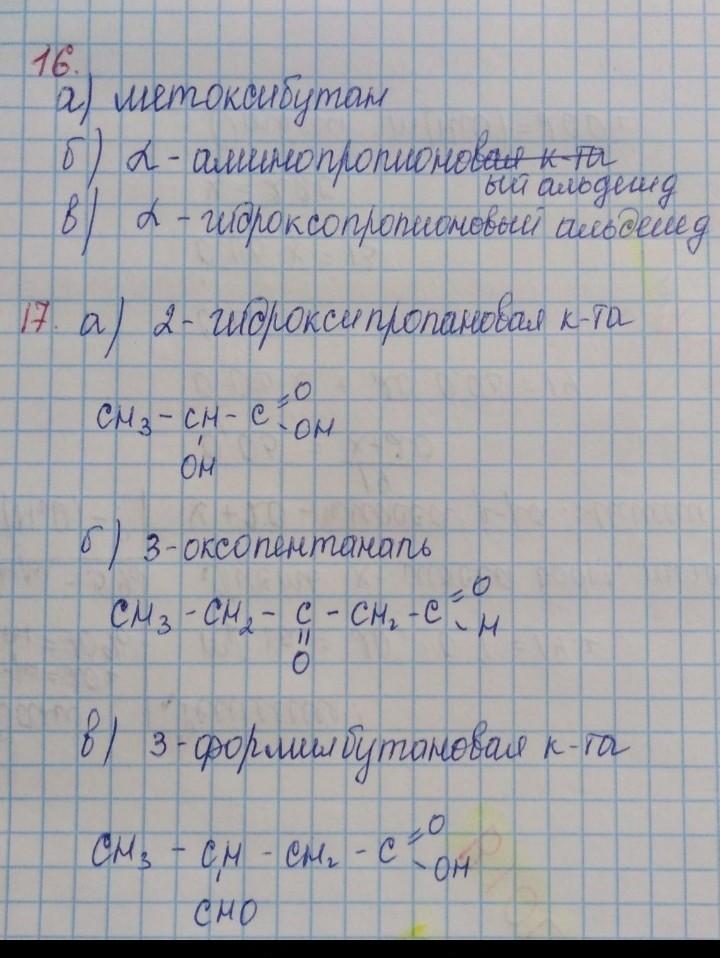 16.
а) метоксибутан
б) α - аминопропионовая к-та
ый альдегид
в) α - гидроксопропионовый альдегид
17. а) 2 - гидроксипропановая к-та
CH₃ - CH - C = O
- OH
OH
б) 3-оксопентаналь
CH₃ - CH₂ - C - CH₂ - C = O
- H
O
в) 3-формилбутановая к-та
CH₃ - CH - CH₂ - C = O
- OH
CHO